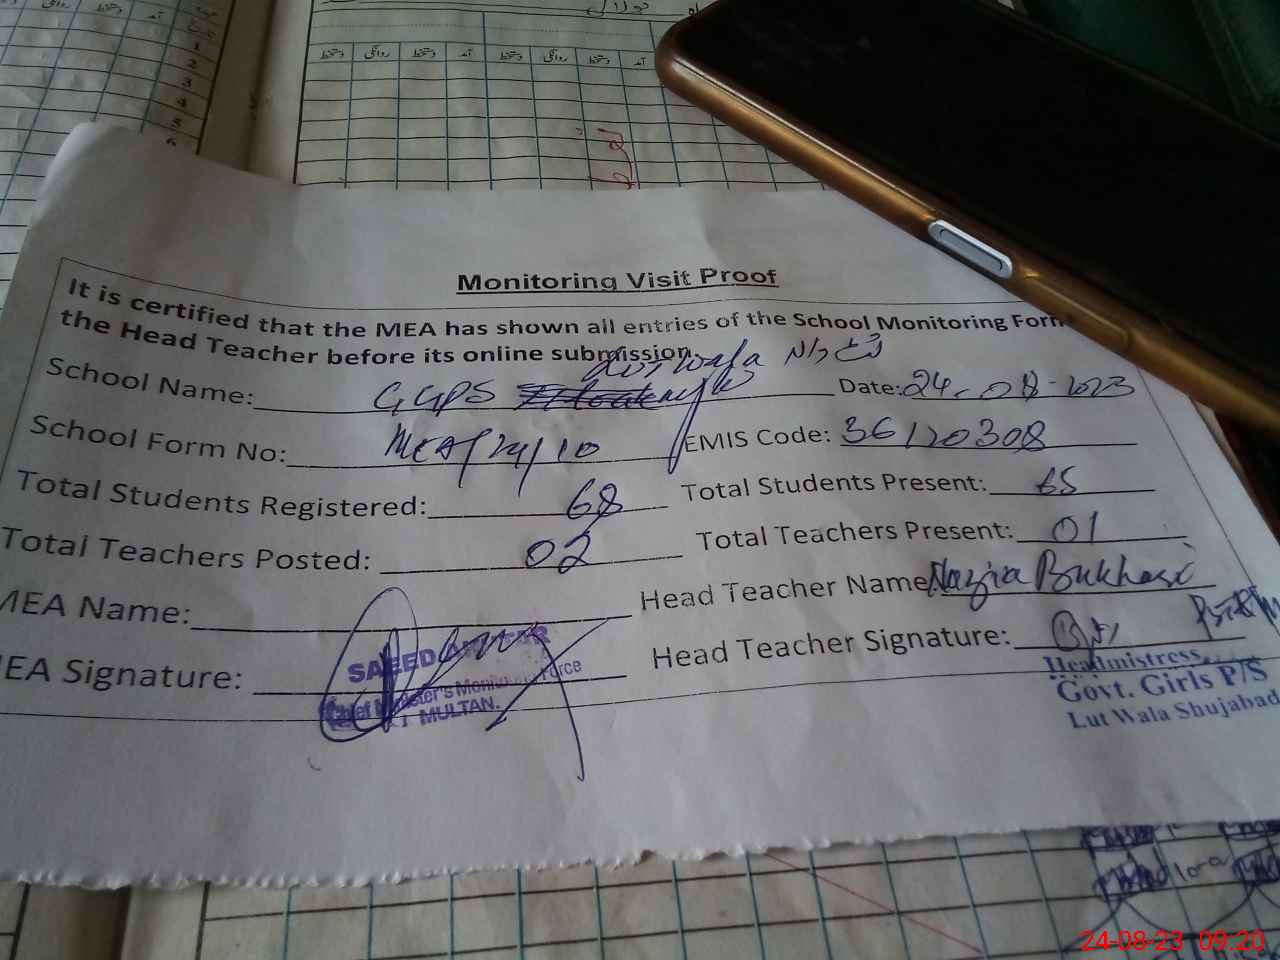 دستخط روانگی دستخط آمد دستخط روانگی دستخط آمد
1
2
3
4
5
6
Monitoring Visit Proof
It is certified that the MEA has shown all entries of the School Monitoring Form
the Head Teacher before its online submission.
Lutwala لٹ والا
School Name: GGPS Date: 24-08-2023
School Form No: MEA/24/10 EMIS Code: 36120308
Total Students Registered: 68 Total Students Present: 65
Total Teachers Posted: 02 Total Teachers Present: 01
MEA Name: Head Teacher Name Nazia Bukhari
MEA Signature: Head Teacher Signature:
SAEED
Chief Minister's Monitoring Force
MULTAN.
Headmistress
Govt. Girls P/S
Lut Wala Shujabad
24-08-23 09:20